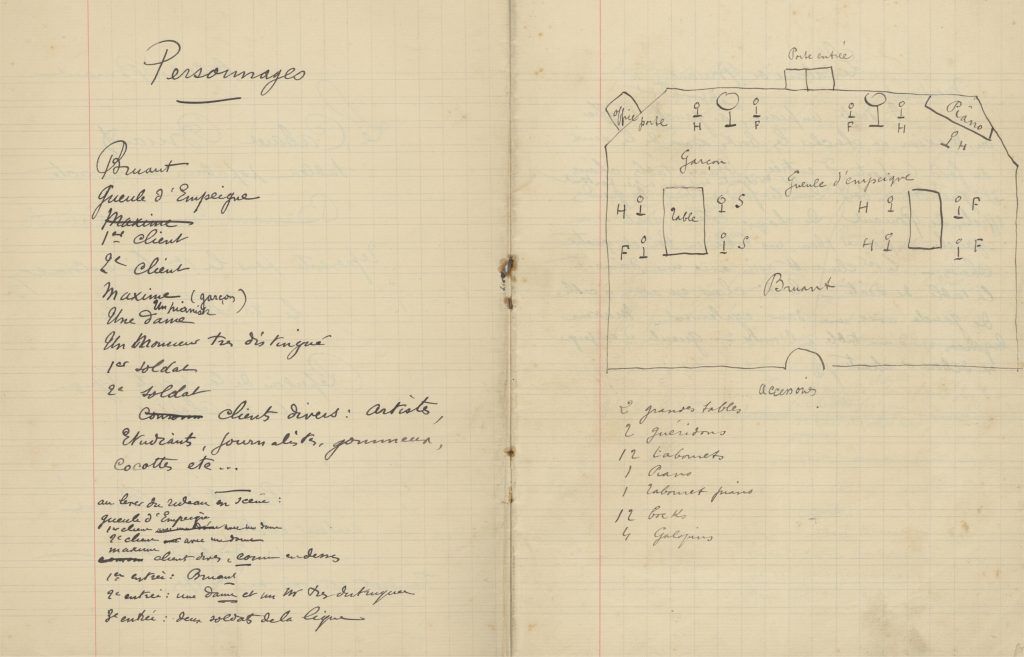 Personnages
Bruant
Gueule d'Empeigne
Maxime
1er client
2e client
Maxime (garçon)
Un pianiste
Une dame
Un Monsieur très distingué
1er soldat
2e soldat
clients divers : artistes,
Etudiants, journalistes, gommeux,
cocottes etc...
au lever du rideau en scène :
gueule d'Empeigne
1er client avec une dame
2e client avec une dame
maxime
client divers, comme en dessus
1ère entrée : Bruant
2e entrée : une dame et un Mr très distingué
3e entrée : deux soldats de la ligne
Porte entrée
Office porte
H F
F H
Piano
H
Garçon
Gueule d'empeigne
H Table S
H F
F S
H F
Bruant
accessoires
2 grandes tables
2 guéridons
12 tabourets
1 Piano
1 tabouret piano
12 bocks
4 Galopins